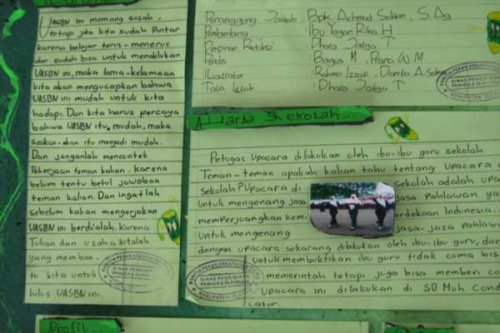 UASBN ini memang susah,
tetapi jika kita sudah Pintar
karena belajar terus-menerus
dan sudah bisa untuk menaklukan
UASBN ini, maka lama-kelamaan
kita akan mengucapkan bahwa
UASBN ini mudah untuk kita
hadapi. Dan kita harus percaya
bahwa UASBN itu, mudah, maka
itu menjadi mudah.
Dan janganlah mencontek
Pekerjaan teman kalian. karena
belum tentu betul jawaban
teman kalian. Dan ingatlah
sebelum kalian mengerjakan
UASBN ini berdo'alah. Karena
Tuhan dan usaha kitalah
yang memban
tu kita untuk
lulus UASBN ini.
Penanggung Jawab : Bpk Achmad Solikin, S.Ag
Pembimbing : Ibu
Pimpinan Redaksi : Dhara Jalya T
Penulis : Bagus M.
Ilustrator
Tata Letak : Dhara Jalya T
Warta Sekolah...
Petugas Upacara dilakukan oleh ibu-ibu guru sekolah
Teman-teman apakah kalian tahu tentang upacara
Sekolah? Upacara di sekolah adalah upa
Untuk mengenang jasa jasa Pahlawan ya
memperjuangkan kem erdekaan Indonesia
Untuk mengenang jasa-jasa pahlaw
dengan upacara sekarang dilakukan oleh ibu-ibu guru, dan
Untuk membuktikan ibu guru tidak cuma bis
memerintah tetapi juga bisa memberi co
Upacara ini dilakukan di SD Muh Cond
Catur.
Profil